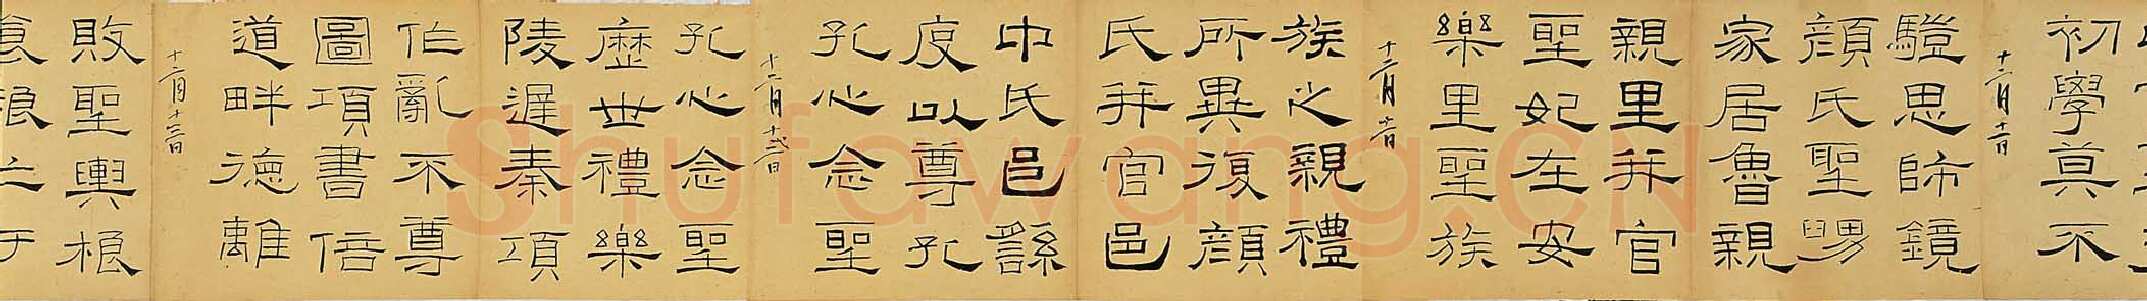 初學莫不
十二月十一日
思師鏡
顏氏聖舅
家居魯親
親里并官
聖妃在安
樂里聖族
十二月
族之親禮
所異復顏
氏并官邑
中氏邑繇
度以尊孔
孔心念聖
十二月十二日
孔心念聖
歷世禮樂
陵遲秦項
作亂不尊
圖項書倍
道畔德離
十二月十三日
敗聖輿粮
食粮亡于
Shufawang.CN